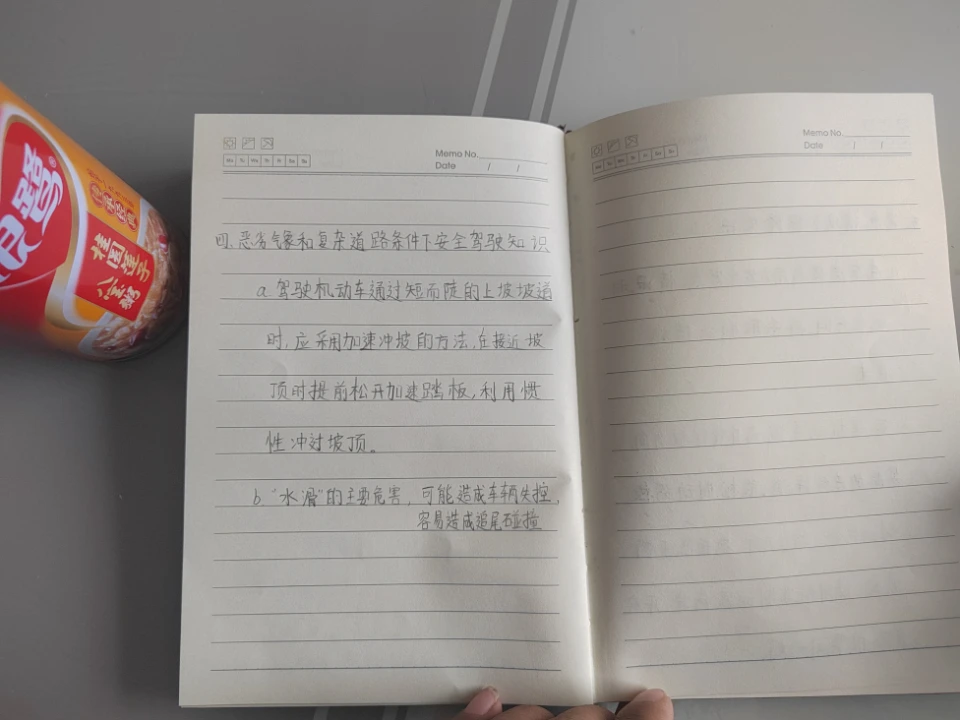 银鹭
桂圆莲子
八宝粥
Memo No.
Date / /
Mo Tu We Th Fr Sa Su
四、恶劣气象和复杂道路条件下安全驾驶知识
a 驾驶机动车通过短而陡的上坡坡道
时,应采用加速冲坡的方法,在接近坡
顶时提前松开加速踏板,利用惯
性冲过坡顶。
b “水滑”的主要危害,可能造成车辆失控,
容易造成追尾碰撞
Memo No.
Date / /